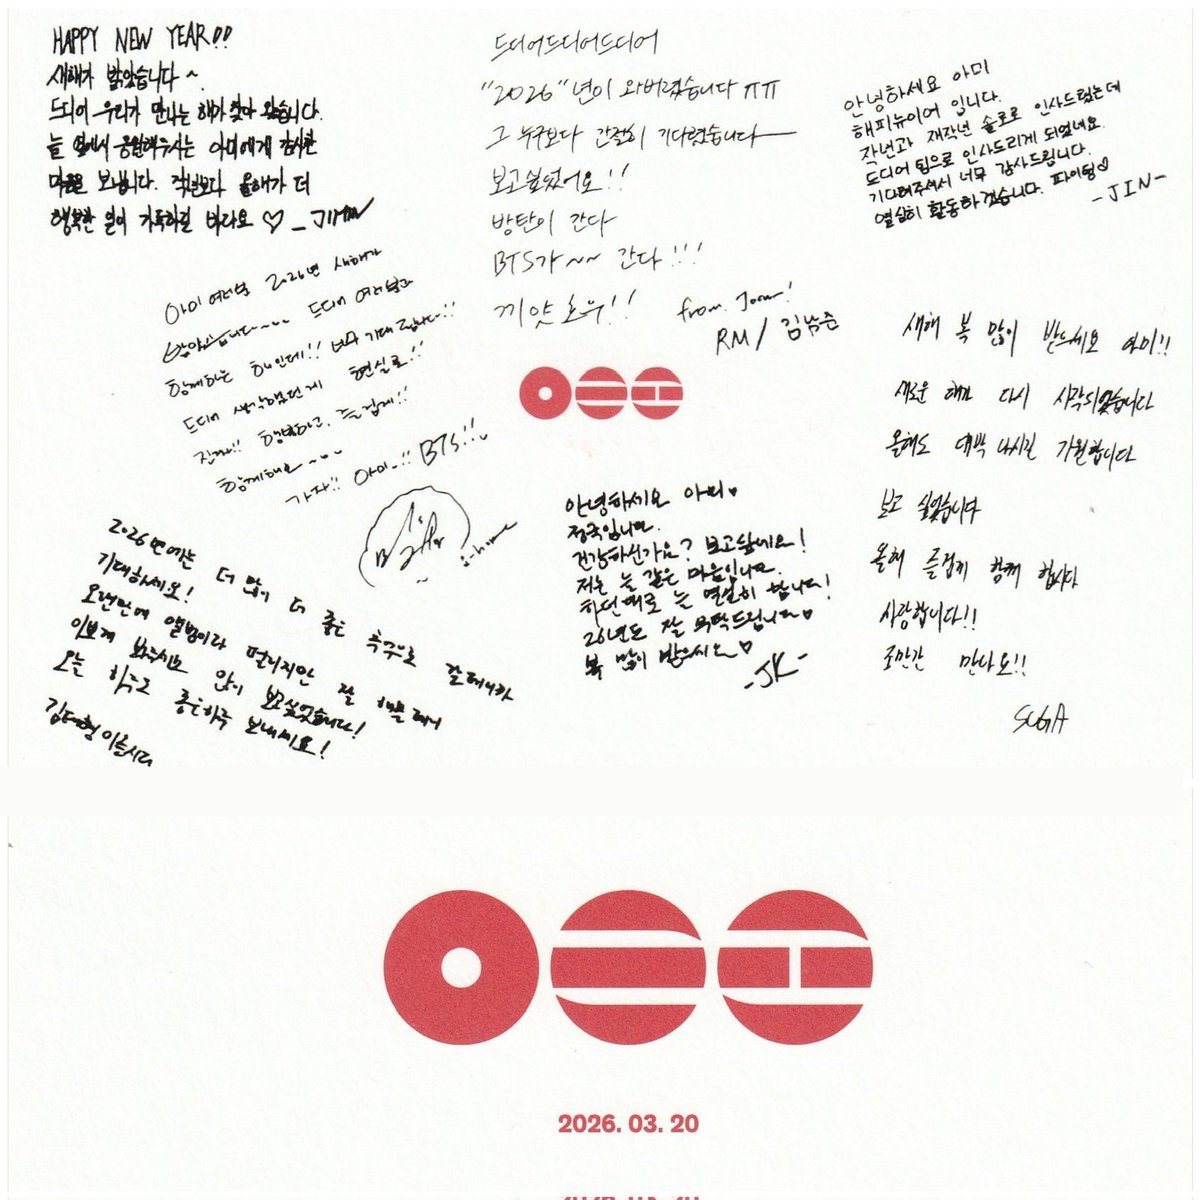 HAPPY NEW YEAR!!
새해가 밝았습니다~
드디어 우리가 만나는 해가 찾아 왔습니다.
늘 옆에서 응원해주시는 아미에게 감사한
마음을 보냅니다. 작년보다 올해가 더
행복한 일이 가득하길 바라요 ♡ _JIMIN
드디어드디어드디어
"2026"년이 와버렸습니다 ㅠㅠ
그 누구보다 간절히 기다렸습니다
보고싶었어요!!
방탄이 간다
BTS가~~ 간다!!!
끼얏호우!!
from. Joon!
RM / 김남준
안녕하세요 아미
해피뉴이어 입니다.
작년과 재작년 솔로로 인사드렸는데
드디어 팀으로 인사드리게 되었네요.
기다려주셔서 너무 감사드립니다.
열심히 활동하겠습니다. 파이팅♡
-JIN-
아미 여러분 2026년 새해가
밝았습니다~~ 드디어 여러분과
함께하는 해인데!! 너무 기대됩니다!!
드디어 생각했던게 현실로!!
진짜!! 행복하고, 즐겁게!!
함께해요~~
가자!! 아미..!! BTS!!
j-hope
새해 복 많이 받으세요 아미!!
새로운 해가 다시 시작되었습니다
올해도 대박 나시길 기원합니다
보고 싶었습니다
올해 즐겁게 함께 합시다
사랑합니다!!
조만간 만나요!!
SUGA
안녕하세요 아미♥
정국입니다.
건강하신가요? 보고싶네요!
저는 늘 같은 마음입니다.
하던대로 늘 열심히 합니다!
26년도 잘 부탁드립니다♥
복 많이 받으세요♥
-JK-
2026년에는 더 많이 더 좋은 추억으로 갈테니까
기대하세요!
오랜만에 앨범이라 떨리지만 잘 해볼테니
이쁘게 봐주세요 많이 보고싶었습니다!
오늘 하루도 좋은하루 보내세요!
김태형 이올시다
2026. 03. 20